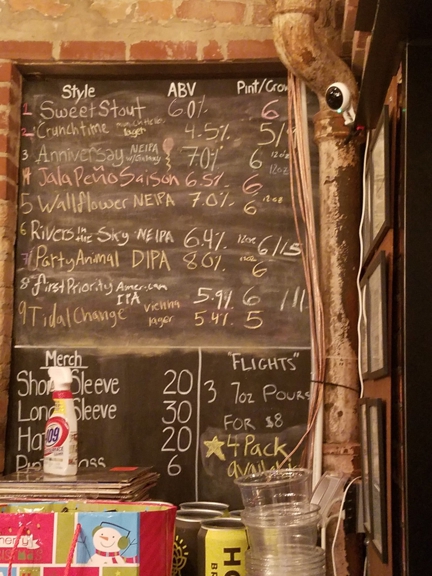 Style ABV Pint/Crow
1 Sweet Stout 6.0% 6
2 Crunchtime lager 4.5% 5/
3 Anniversay NEIPA 7.0% 6 12oz
4 JalaPeño Saison 6.5% 6 12oz
5 Wallflower NEIPA 7.0% 6 12oz
6 Rivers in the Sky NEIPA 6.4% 12oz 6/15
7 Party Animal DIPA 8.0% 6
8 First Priority American IPA 5.9% 6
9 Tidal Change Vienna lager 5.4% 5
Merch
Short Sleeve 20
Long Sleeve 30
Ha 20
6
"FLIGHTS"
3 7oz Pours
FOR $8
4 Pack
availa
409